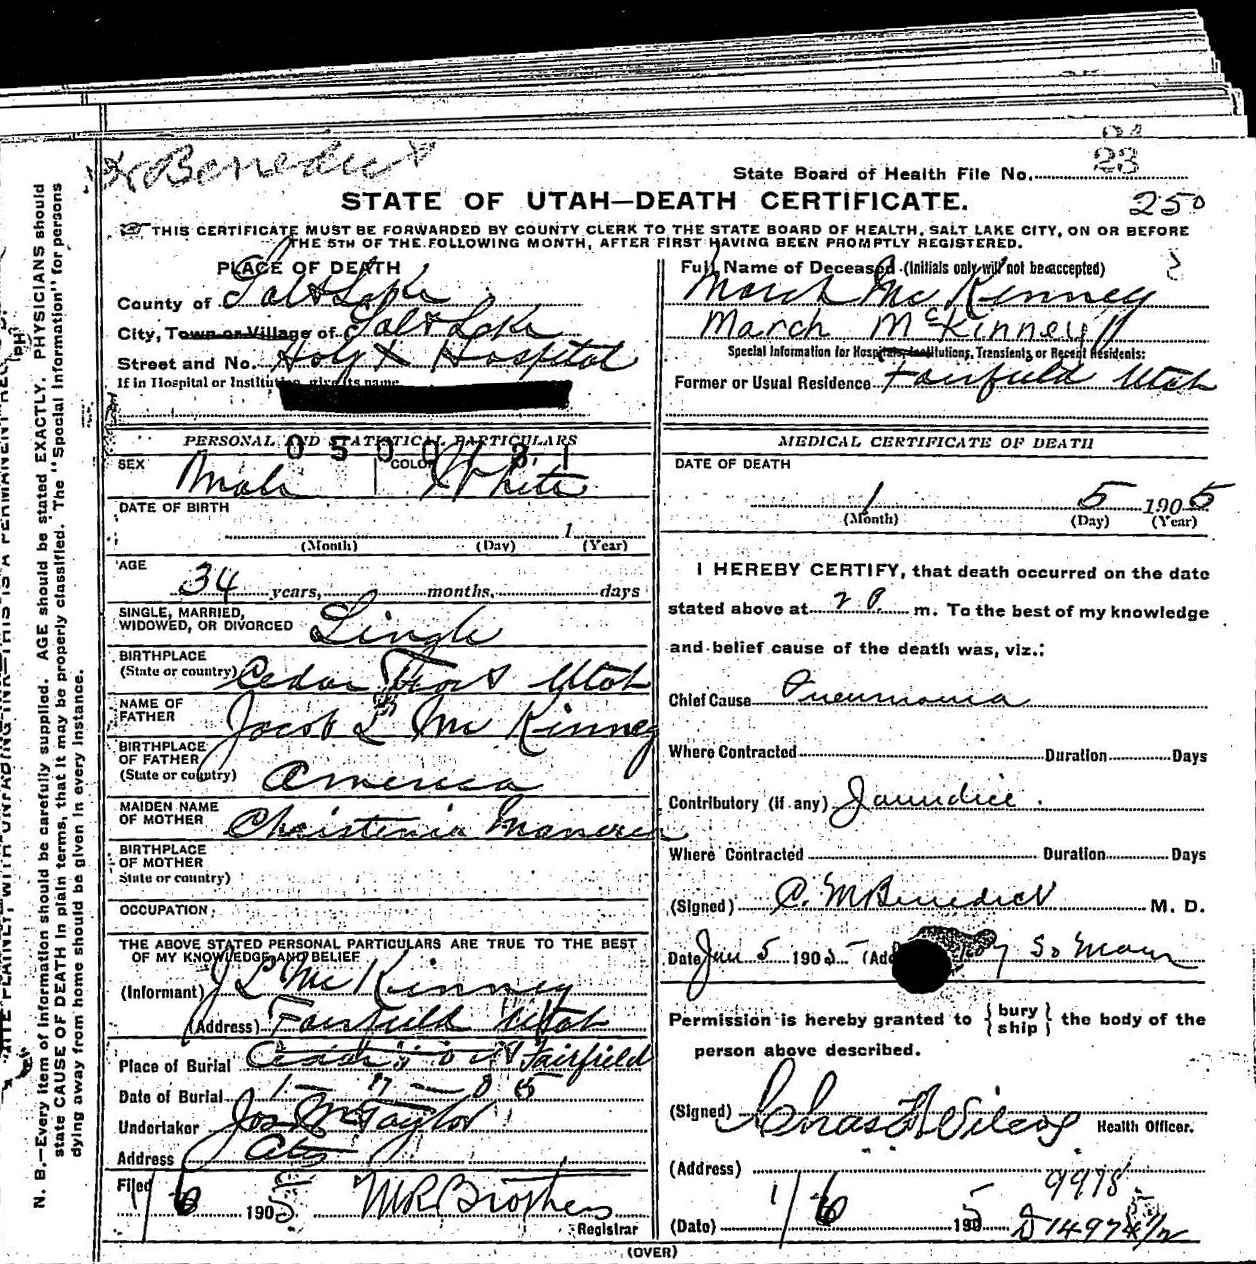 Benedict
State Board of Health File No. 23
STATE OF UTAH—DEATH CERTIFICATE.
250
THIS CERTIFICATE MUST BE FORWARDED BY COUNTY CLERK TO THE STATE BOARD OF HEALTH, SALT LAKE CITY, ON OR BEFORE
THE 5TH OF THE FOLLOWING MONTH, AFTER FIRST HAVING BEEN PROMPTLY REGISTERED.
PLACE OF DEATH
County of Salt Lake
City, Town or Village of Salt Lake
Street and No. Holy X Hospital
If in Hospital or Institution, give its name
Full Name of Deceased (Initials only will not be accepted)
March McKinney
March McKinney
Special Information for Hospitals, Institutions, Transients, or Recent Residents:
Former or Usual Residence Fairfield Utah
PERSONAL AND STATISTICAL PARTICULARS
SEX Male COLOR White
DATE OF BIRTH
1
(Month) (Day) (Year)
AGE
34 years, months, days
SINGLE, MARRIED,
WIDOWED, OR DIVORCED Single
BIRTHPLACE
(State or country) Cedar Fort Utah
NAME OF
FATHER Jacob L McKinney
BIRTHPLACE
OF FATHER
(State or country) America
MAIDEN NAME
OF MOTHER
BIRTHPLACE
OF MOTHER
State or country)
OCCUPATION
THE ABOVE STATED PERSONAL PARTICULARS ARE TRUE TO THE BEST
OF MY KNOWLEDGE AND BELIEF
(Informant) J L McKinney
(Address) Fairfield Utah
Place of Burial Fairfield
Date of Burial 1 — 7 — 05
Undertaker Jos Wm Taylor
Address City
Filed 1/6 1905 Registrar
MEDICAL CERTIFICATE OF DEATH
DATE OF DEATH
1 5 1905
(Month) (Day) (Year)
I HEREBY CERTIFY, that death occurred on the date
stated above at 2 P. m. To the best of my knowledge
and belief cause of the death was, viz.:
Chief Cause Pneumonia
Where Contracted Duration Days
Contributory (if any) Jaundice.
Where Contracted Duration Days
(Signed) C. M Benedict M. D.
Date Jan 5 1905 So Main
Permission is hereby granted to {bury
ship} the body of the
person above described.
(Signed) Chas Wilcox Health Officer.
(Address)
9978
(Date) 1/6 1905
(OVER)
N. B.—Every item of information should be carefully supplied. AGE should be stated EXACTLY. PHYSICIANS should
state CAUSE OF DEATH in plain terms, that it may be properly classified. The "Special Information" for persons
dying away from home should be given in every instance.